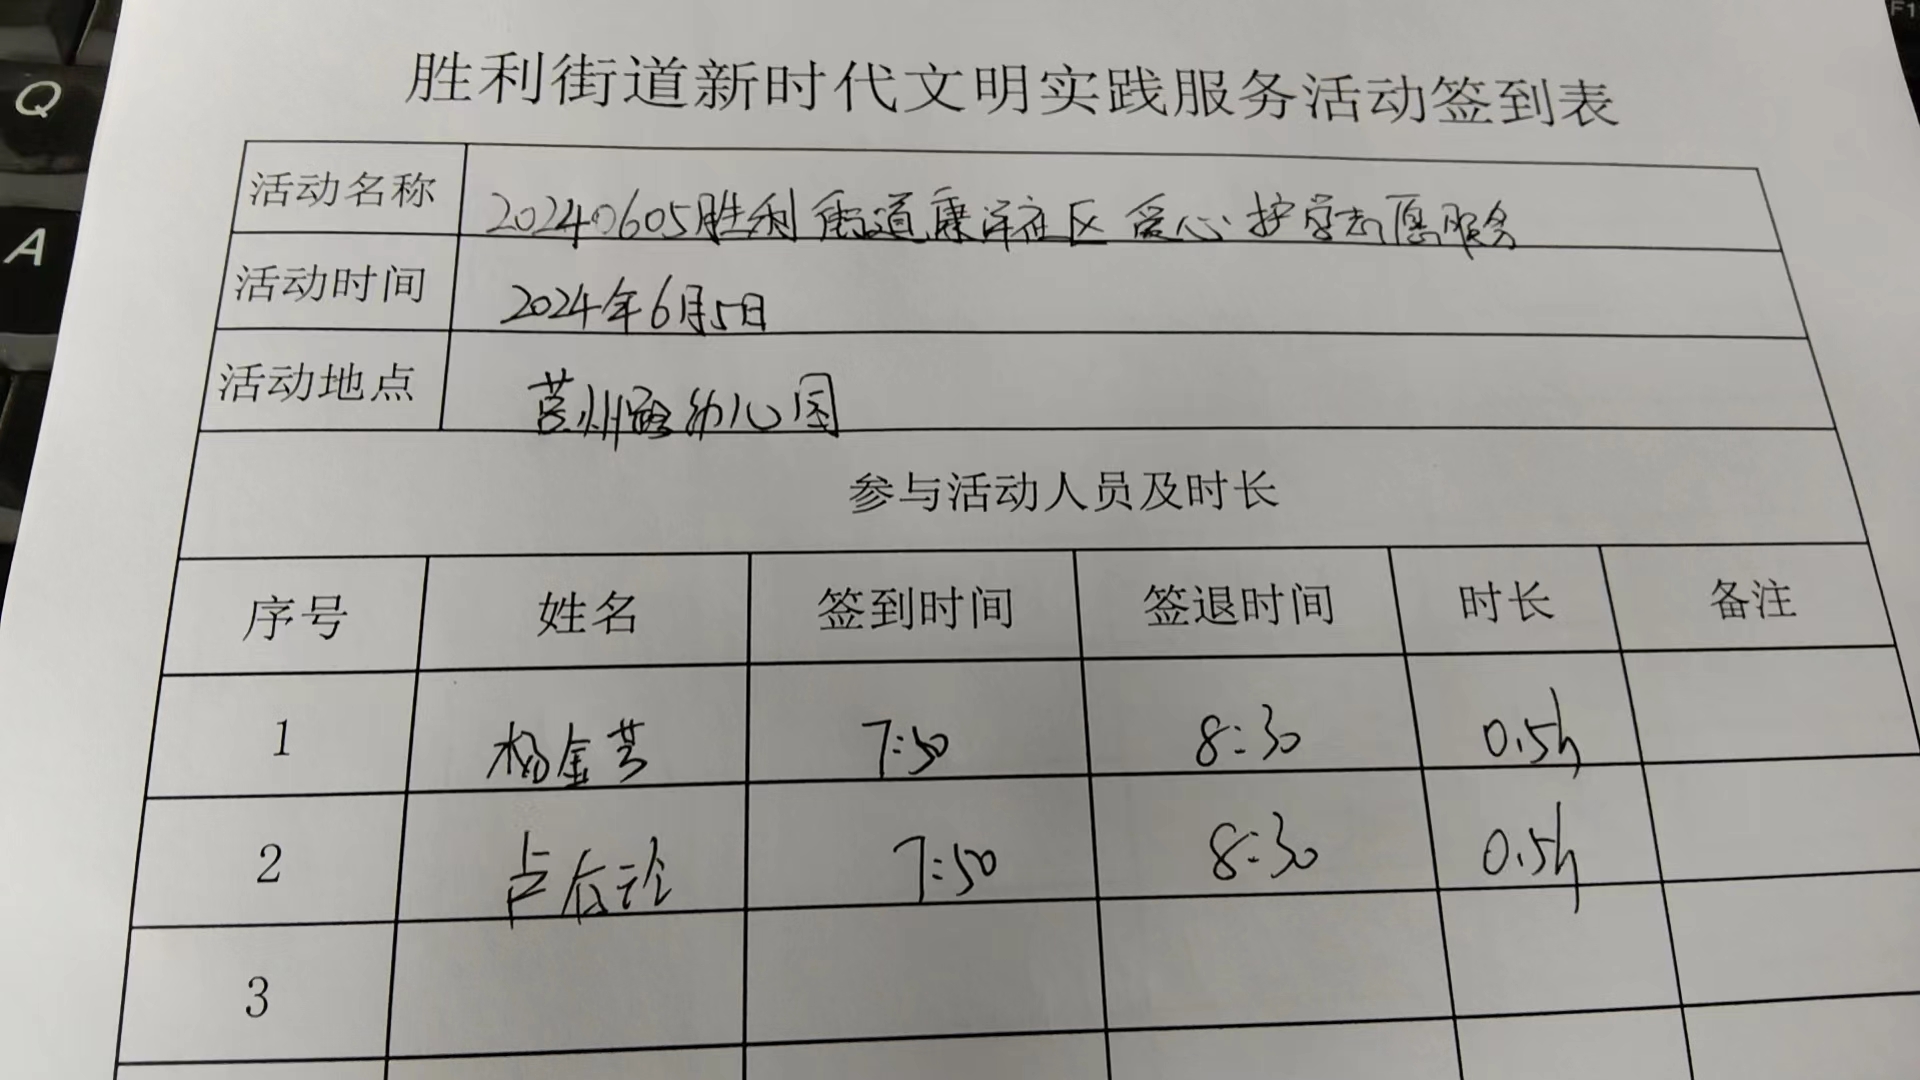 胜利街道新时代文明实践服务活动签到表
活动名称 20240605胜利街道康洋社区爱心护学志愿服务
活动时间 2024年6月5日
活动地点 莒州路幼儿园
参与活动人员及时长
序号 姓名 签到时间 签退时间 时长 备注
1 杨金芳 7:50 8:30 0.5h
2 7:50 8:30 0.5h
3
Q
A